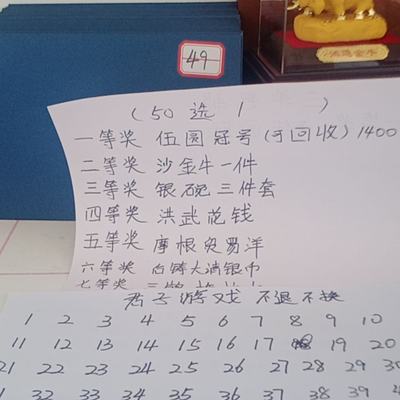 49
(50 选 1 )
一等奖 伍圆冠号(可回收)1400
二等奖 沙金牛一件
三等奖 银碗三件套
四等奖 洪武花钱
五等奖 摩根贸易洋
六等奖 白铸大清银币
七等奖 三
君子游戏 不退不换
1 2 3 4 5 6 7 8 9 10
11 12 13 14 15 16 17 18 19 20
21 22 23 24 25 26 27 28 29 30
32 33 34 35 36 37 38 39